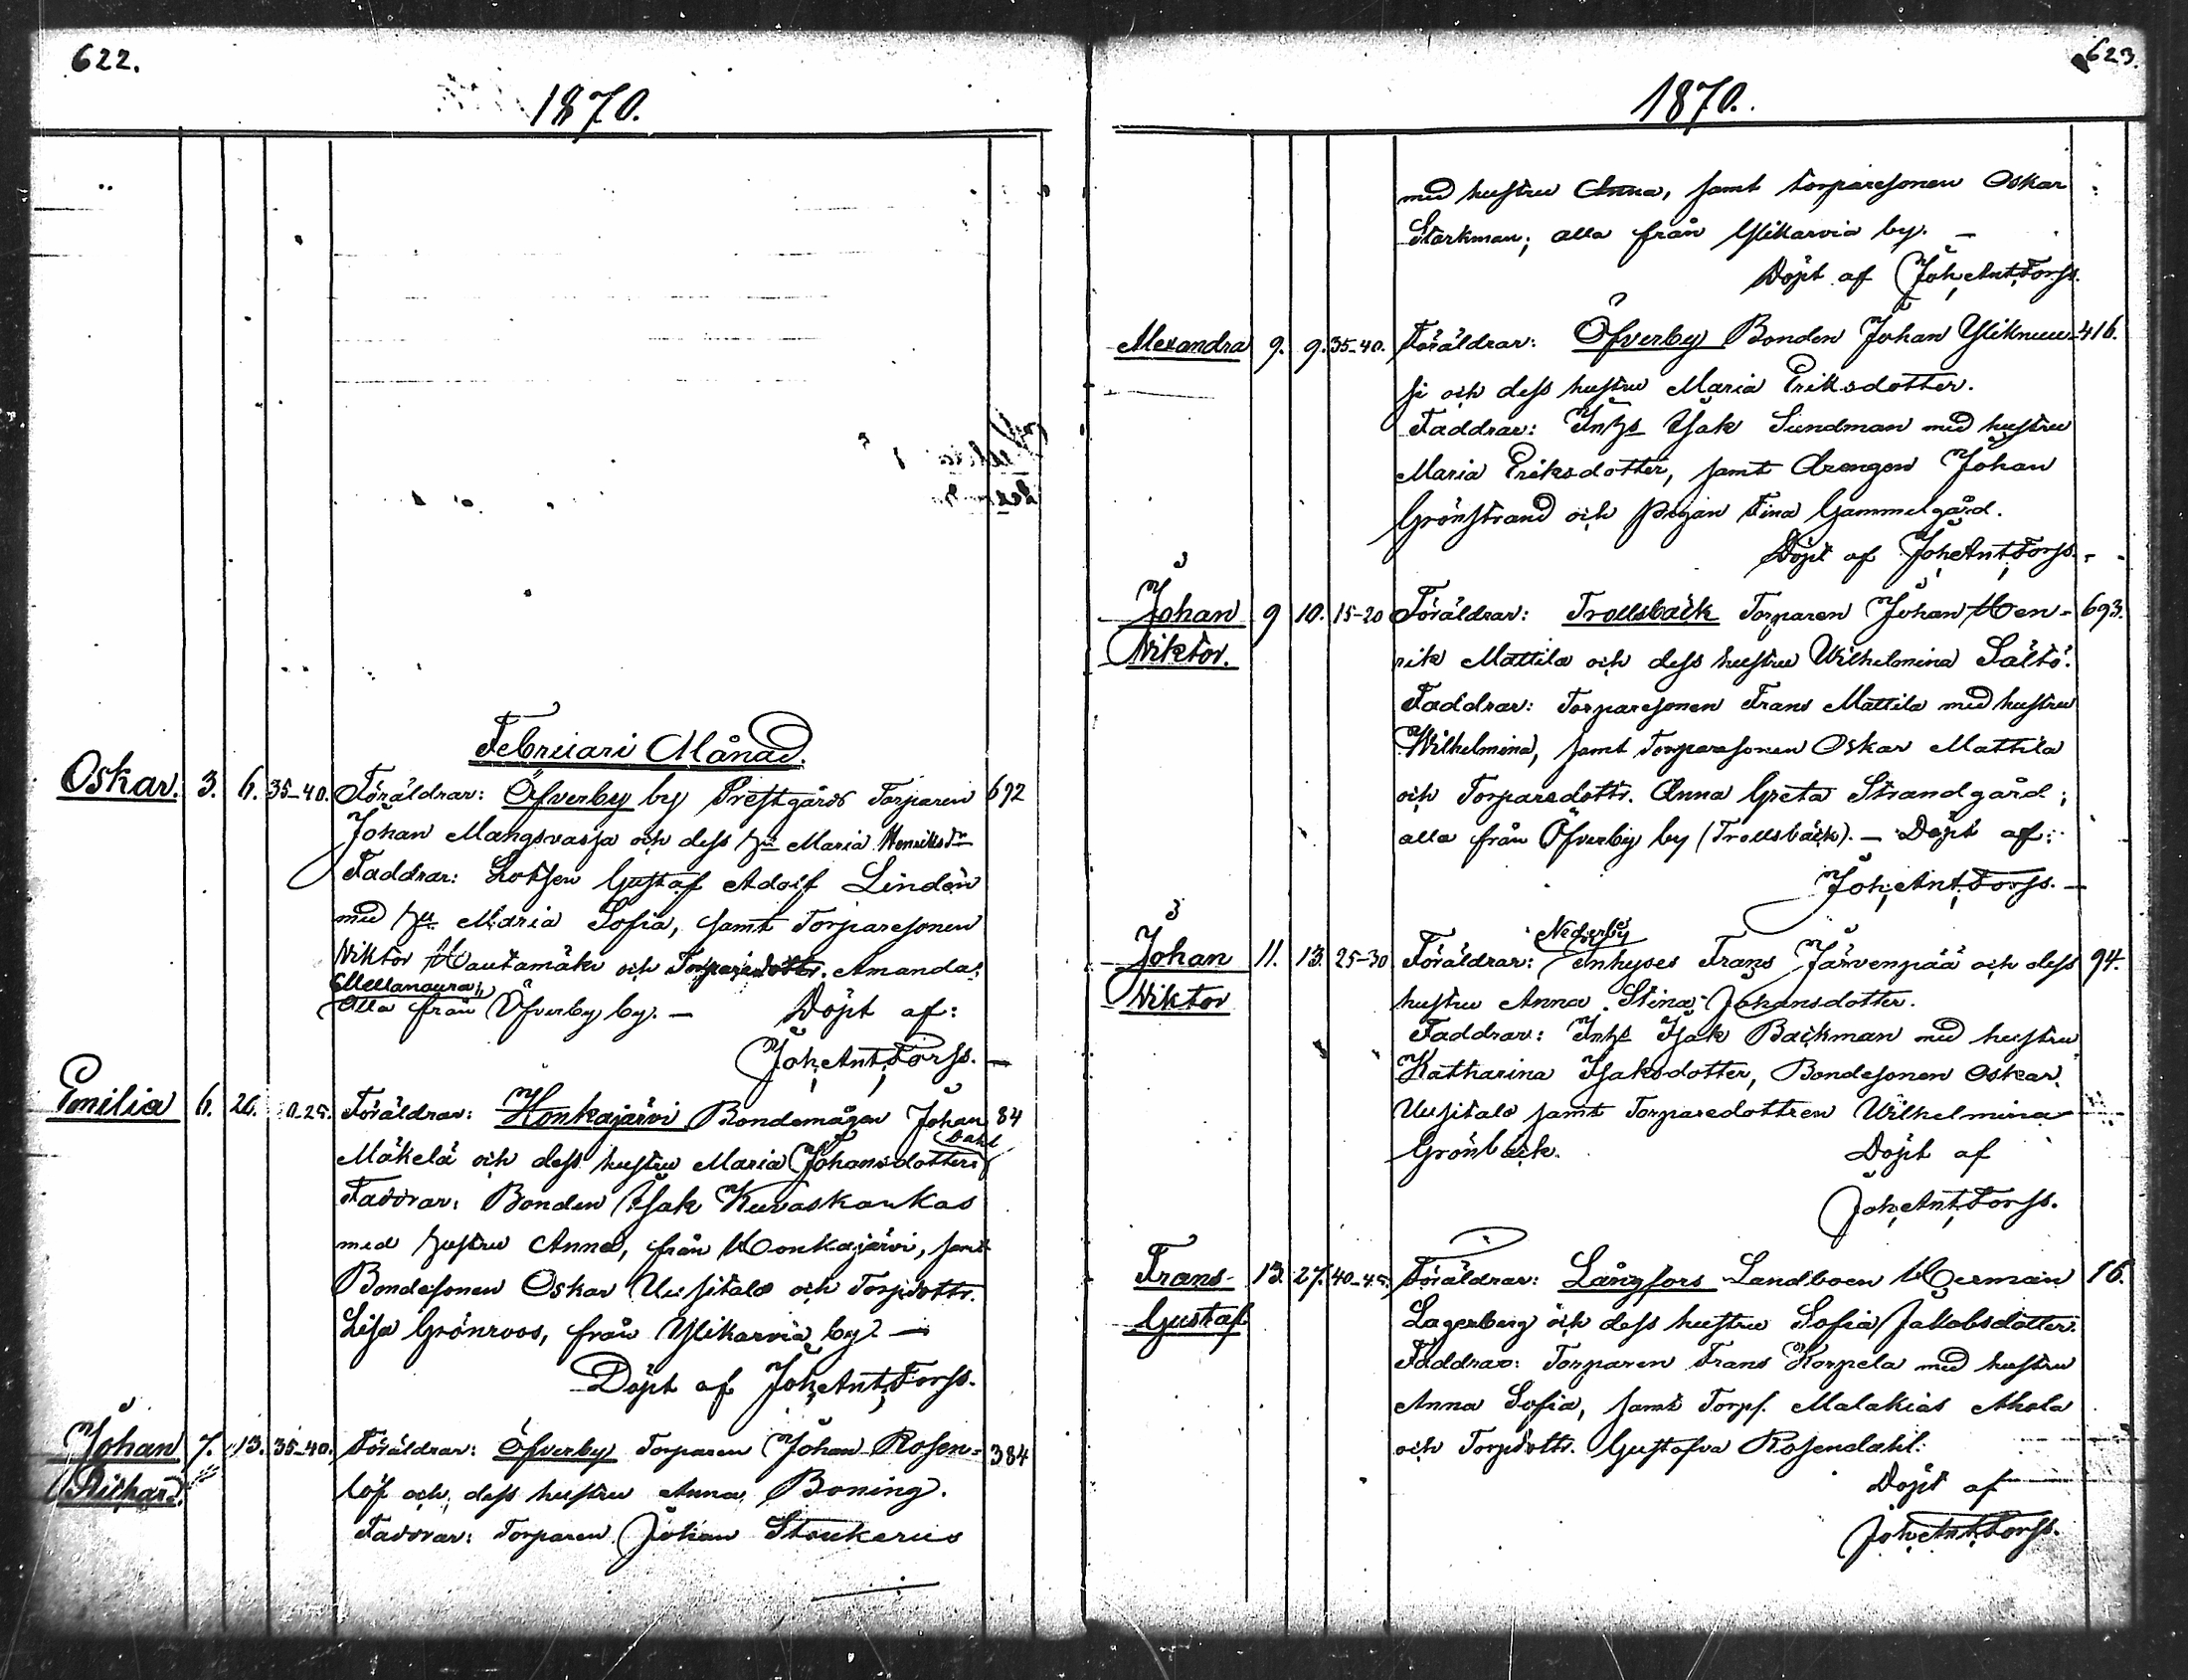 622.
1870.
Februari Månad.
Oskar. 3. 6. 35-40. Föräldrar: Öfverby by Prestgårds Torparen 692
Johan Mangsvasja och dess hu Maria Henriksdr
Faddrar: Lotsen Gustaf Adolf Lindén
med hu Maria Sofia, samt Torparesonen
Viktor Hautamäki och Torparedottr. Amanda
Mellanoura;
alla från Öfverby by. — Döpt af:
Joh. Ant. Forss. —
Emilia 6. 26. 0.25. Föräldrar: Honkajärvi Bondemågen Johan 84
Dahl
Mäkelä och dess hustru Maria Johansdotter
Faddrar: Bonden Isak Kuvaskankas
med hustru Anna, från Honkajärvi, samt
Bondesonen Oskar Uusitalo och Torpdottr.
Lisa Grönroos, från Ylikarvia by. —
Döpt af Joh. Ant. Forss.
Johan 7. 13. 35-40. Föräldrar: Öfverby Torparen Johan Rosen- 384
Rikhard.
löf och dess hustru Anna Boning.
Faddrar: Torparen Johan Stoukerus
623.
1870.
med hustru Anna, samt torparesonen Oskar
Starkman; alla från Ylikarvia by. —
Döpt af Joh. Ant. Forss.
Alexandra 9. 9. 35-40. Föräldrar: Öfverby Bonden Johan Yliknuu- 416.
si och dess hustru Maria Eriksdotter.
Faddrar: Inhs Isak Sundman med hustru
Maria Eriksdotter, samt drengen Johan
Grönstrand och pigan Fina Gammelgård.
Döpt af Joh. Ant. Forss.
Johan 9 10. 15-20 Föräldrar: Trollsbäck Torparen Johan Hen- 693.
Viktor.
rik Mattila och dess hustru Wilhelmina Sältö.
Faddrar: Torparesonen Frans Mattila med hustru
Wilhelmina, samt Torparesonen Oskar Mattila
och Torparedottr. Anna Greta Strandgård;
alla från Öfverby by (Trollsbäck). — Döpt af:
Joh. Ant. Forss. —
Nederby
Johan 11. 13. 25-30 Föräldrar: Inhyses Frans Järvenpää och dess 94.
Viktor
hustru Anna Stina Johansdotter.
Faddrar: Inhs Isak Backman med hustru
Katharina Isaksdotter, Bondesonen Oskar
Uusitalo samt Torparedottren Wilhelmina
Grönbäck. Döpt af
Joh. Ant. Forss.
Frans 13. 27. 40-45. Föräldrar: Långfors Landboen Herman 16.
Gustaf
Lagerberg och dess hustru Sofia Jakobsdotter.
Faddrar: Torparen Frans Korpela med hustru
Anna Sofia, samt Torps. Malakias Ahola
och Torpdottr. Gustafva Rosendahl.
Döpt af
Joh. Ant. Forss.